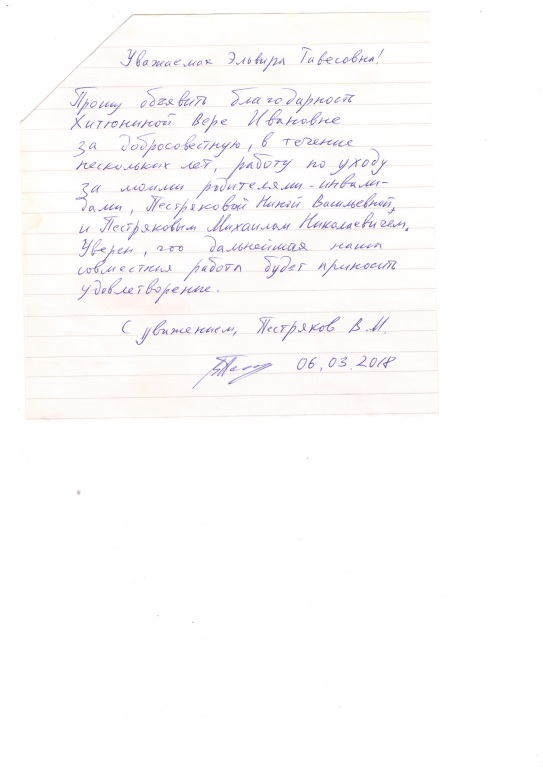 Уважаемая Эльвира Тавесовна!
Прошу объявить благодарность
Хитюниной Вере Ивановне
за добросовестную, в течение
нескольких лет, работу по уходу
за моими родителями-инвали-
дами, Пестряковой Ниной Васильевной,
и Пестряковым Михаилом Николаевичем.
Уверен, что дальнейшая наша
совместная работа будет приносить
удовлетворение.
С уважением, Пестряков В.М.
06.03.2018